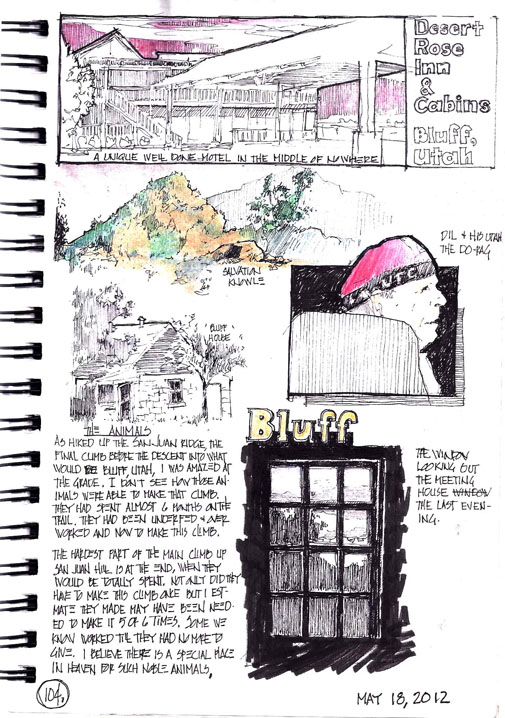 Desert
Rose
Inn
&
Cabins
Bluff,
Utah
A UNIQUE WELL DONE MOTEL IN THE MIDDLE OF NOWHERE
SALVATION
KNOWLE
DIL & HIS UTAH
THE DO-RAG
BLUFF
HOUSE
THE ANIMALS
AS HIKED UP THE SAN JUAN RIDGE, THE
FINAL CLIMB BEFORE THE DESCENT INTO WHAT
WOULD BE BLUFF, UTAH, I WAS AMAZED AT
THE GRADE. I DON'T SEE HOW THOSE AN-
IMALS WERE ABLE TO MAKE THAT CLIMB.
THEY HAD SPENT ALMOST 6 MONTHS ON THE
TRAIL. THEY HAD BEEN UNDERFED & OVER
WORKED AND NOW TO MAKE THIS CLIMB.
THE HARDEST PART OF THE MAIN CLIMB UP
SAN JUAN HILL IS AT THE END, WHEN THEY
WOULD BE TOTALLY SPENT. NOT ONLY DID THEY
HAVE TO MAKE THIS CLIMB ONCE BUT I EST-
MATE THEY MADE MAY HAVE BEEN NEED-
ED TO MAKE IT 5 OR 6 TIMES. SOME WE
KNOW WORKED TILL THEY HAD NO MORE TO
GIVE. I BELIEVE THERE IS A SPECIAL PLACE
IN HEAVEN FOR SUCH NOBLE ANIMALS.
Bluff
THE WINDOW
LOOKING OUT
THE MEETING
HOUSE WINDOW
THE LAST EVEN-
ING.
104.
MAY 18, 2012